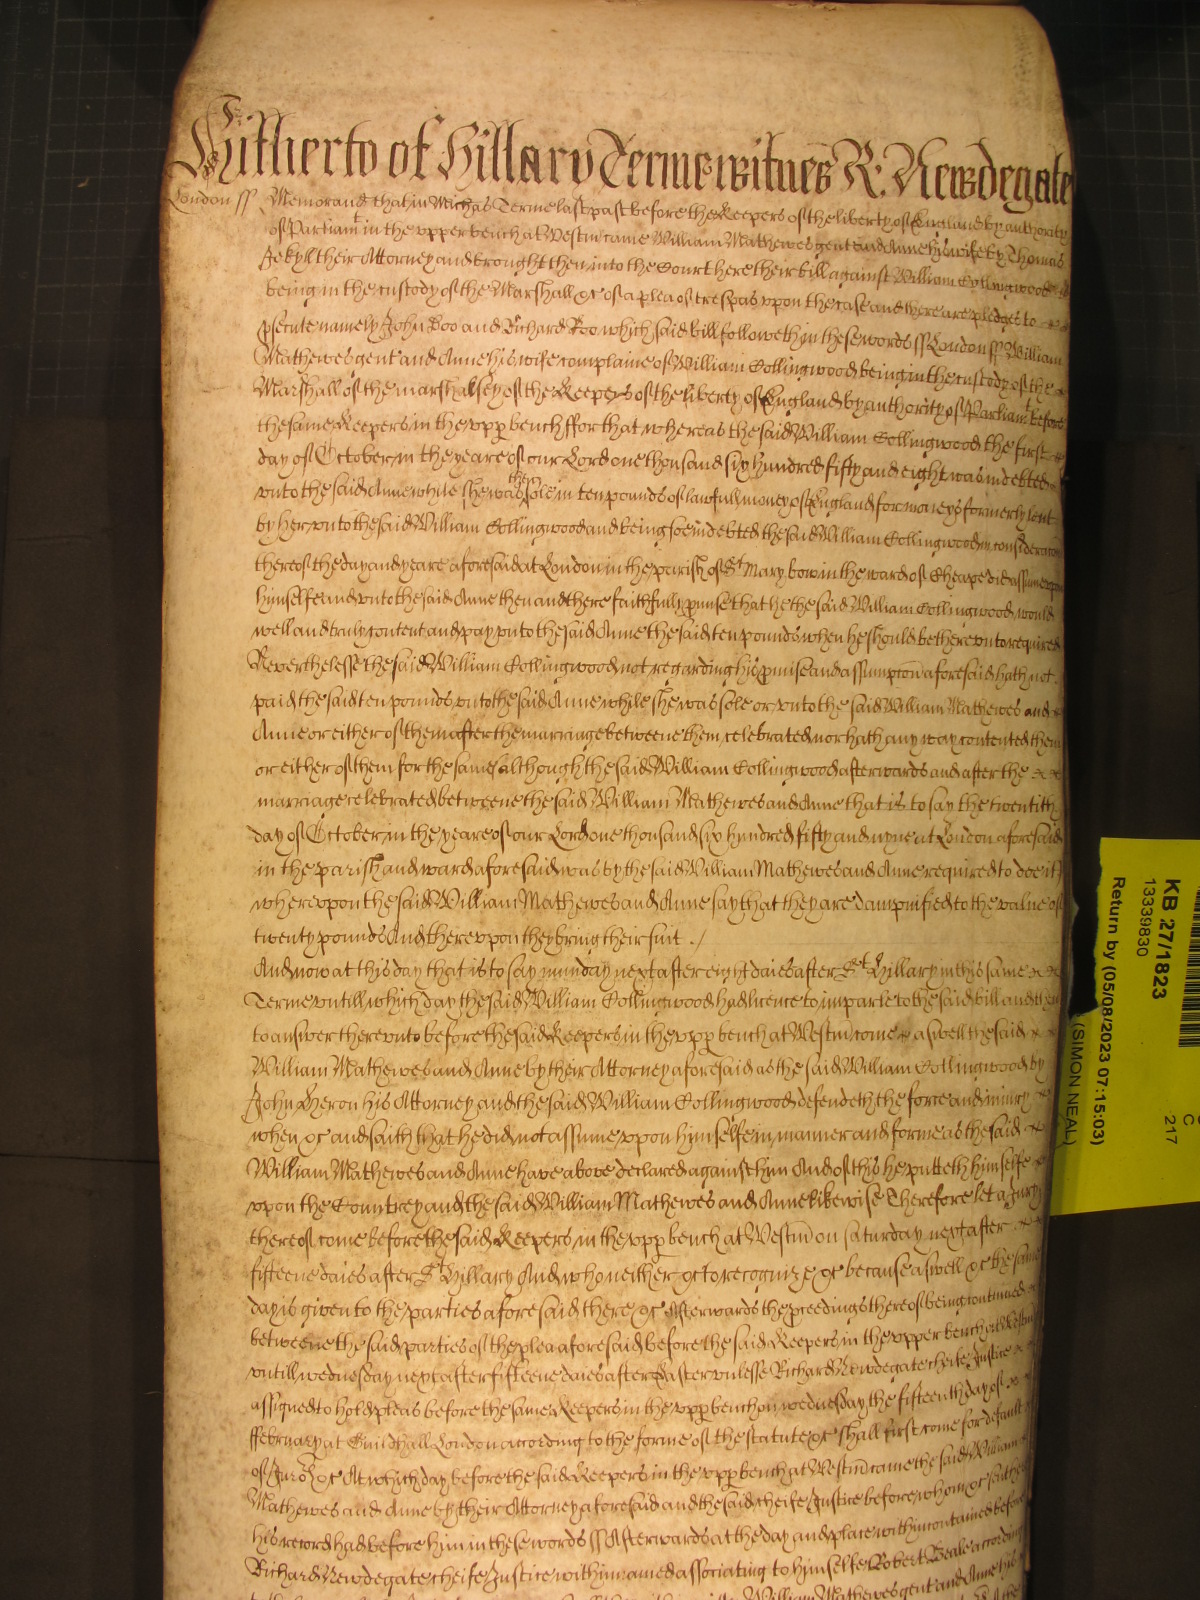 Hitherto of Hillary Terme witnes R: Newdegate
London ss Memorand that in Michas Terme last past before the Keepers of the liberty of England by authority
of Parliamt in the upper bench at Westm came William Mathewes gent and Anne his wife by Thomas
Jekyll their Attorney and brought then into the Court here their bill against William Collingwood
being in the custody of the Marshall &c of a plea of trespas vpon the case and there are pledges to
psecute namely John Doo and Richard Roo which said bill followeth in these words ss London ss William
Mathewes gent and Anne his wife complaine of William Collingwood being in the custody of the
Marshall of the marshalsey of the Keepers of the liberty of England by authority of Parliamt before
the same Keepers in the vpp bench ffor that whereas the said William Collingwood the first
day of October in the yeare of our Lord one thousand six hundred fifty and eight was indebted
vnto the said Anne while she was then sole in ten pounds of lawfull money of England for moneys formerly lent
by her vnto the said William Collingwood and being soe indebted the said William Collingwood in consideracon
thereof the day and yeare aforesaid at London in the parish of St Mary bow in the ward of Cheape did assume vpon
himselfe and vnto the said Anne then and there faithfully pmise that he the said William Collingwood would
well and truly content and pay vnto the said Anne the said ten pounds when he should be therevnto required
Neverthelesse the said William Collingwood not regarding his pmise and assumpcon aforesaid hath not
paid the said ten pounds vnto the said Anne while she was sole or vnto the said William Mathewes and
Anne or either of them after the marriage betweene them celebrated nor hath any way contented them
or either of them for the same although the said William Collingwood afterwards and after the
marriage celebrated betweene the said William Mathewes and Anne that is to say the twentith
day of October in the yeare of our Lord one thousand six hundred fifty and nyne at London aforesaid
in the parish and ward aforesaid was by the said William Mathewes and Anne required to doe it
wherevpon the said William Mathewes and Anne say that they are dampnified to the value of
twenty pounds And therevpon they bring their suit ./
And now at this day that is to say munday next after eight daies after St Hillary in this same
Terme vntill which day the said William Collingwood had licence to imparle to the said bill and then
to answer therevnto before the said Keepers in the vpp bench at Westm come aswell the said
William Mathewes and Anne by their Attorney aforesaid as the said William Collingwood by
John Heron his Attorney and the said William Collingwood defendeth the force and iniury
when &c and saith that he did not assume vpon himselfe in manner and forme as the said
William Mathewes and Anne have above declared against him And of this he putteth himselfe
vpon the Countrey and the said William Mathewes and Anne likewise Therefore let a Jury
thereof come before the said Keepers in the vpp bench at Westm on saturday next after
fifteene daies after St Hillary And who neither &c to recognize &c because aswell &c the same
day is given to the parties aforesaid there &c Afterwards the pceedings thereof being continued
betweene the said parties of the plea aforesaid before the said Keepers in the vpper bench at Westm
vntill wednesday next after fifteene daies after Easter vnlesse Richard Newdegate cheife Justice
assigned to hold pleas before the same Keepers in the vpp bench on wednesday the fifteenth day of
ffebruary at Guildhall London according to the forme of the statute &c shall first come for default
of Juro &c At which day before the said Keepers in the vpp bench at Westm came the said William
Mathewes and Anne by their Attorney aforesaid and the said cheife Justice before whom &c sent
his record had before him in these words ss Afterwards at the day and place within contained before
Richard Newdegate cheife Justice within named associating to himselfe Robert Beale according
William Mathewes gent and Anne his
KB 27/1823
13339830
Return by (05/08/2023 07:15:03)
(SIMON NEAL)
C
217